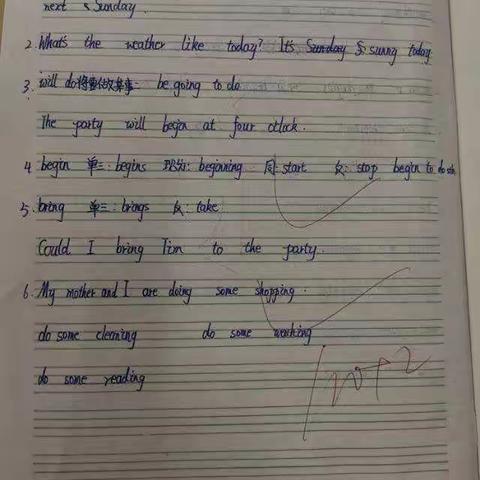 next Sunday.
2. What's the weather like today? It's Sunday sunny today
3. will do将要做某事: be going to do
The party will begin at four o'clock.
4. begin 单三: begins 现分: beginning 同: start 反: stop begin to do sth
5. bring 单三: brings 反: take
Could I bring Tim to the party.
6. My mother and I are doing some shopping.
do some cleaning do some washing
do some reading